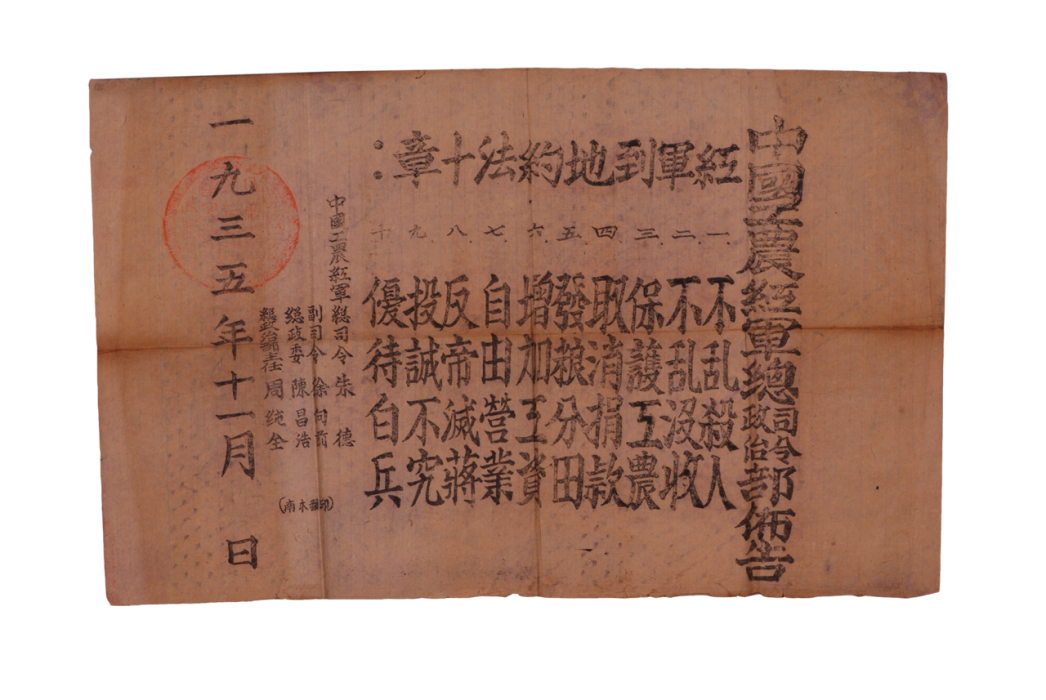 中國工農紅軍總司令政治部佈告
紅軍到地約法十章：
一. 不乱殺人
二. 不乱没收
三. 保護工農
四. 取消捐款
五. 發粮分田
六. 增加工資
七. 自由營業
八. 反帝滅蔣
九. 投誠不究
十 優待白兵
中國工農紅軍總司令 朱德
副司令 徐向前
總政委 陳昌浩
總政治部主任 周純全
一九三五年十一月 日